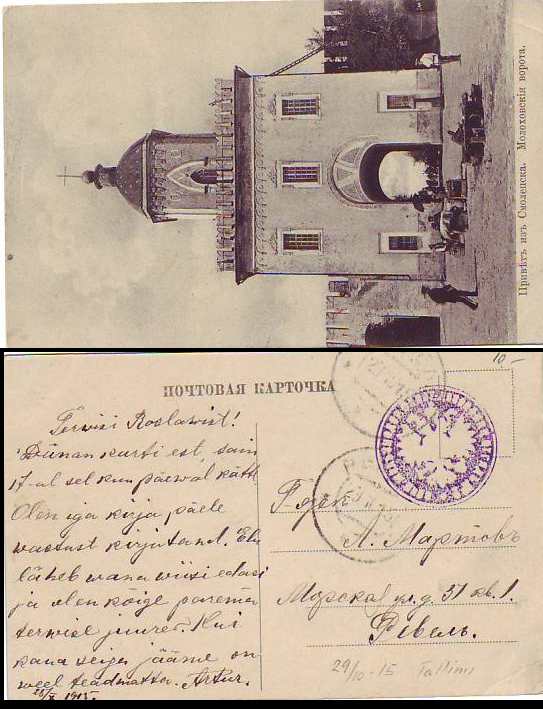 Привѣтъ изъ Смоленска. Молоховскія ворота.
ПОЧТОВАЯ КАРТОЧКА
Terwisi Roslawist!
Tänan kardi est, sain
17-al sel kuu päewal kätte
Olen iga kirja, pääle
wastust kirjutand. Elu
läheb wana wiisi edasi
ja olen kõige parema
terwise juures. Kui
kaua seiga jääme on
weel teadmatta. Artur.
28/X 1915.
А. Мартовъ
Морская ул. д. 51 кв. 1.
Ревель.
29/10-15 Tallinn
10-